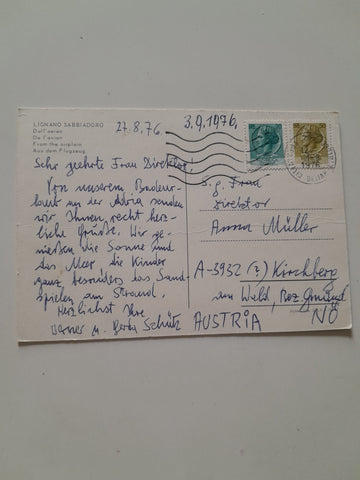 LIGNANO SABBIADORO
Dall'aereo
De l'avion
From the airplain
Aus dem Flugzeug
27.8.76.
3.9.1976.
Sehr geehrte Frau Direktor!
Von unserem Badeur-
laub an der Adria senden
wir Ihnen recht herz-
liche Grüße. Wir ge-
nießen die Sonne und
das Meer, die Kinder
ganz besonders das Sand-
spielen am Strand.
Herzlichst Ihre
Werner u. Berta Schütz
S. g. Frau
Direktor
Anna Müller
A-3932 (?) Kirchberg
am Wald, Bez. Gmünd
AUSTRIA NÖ